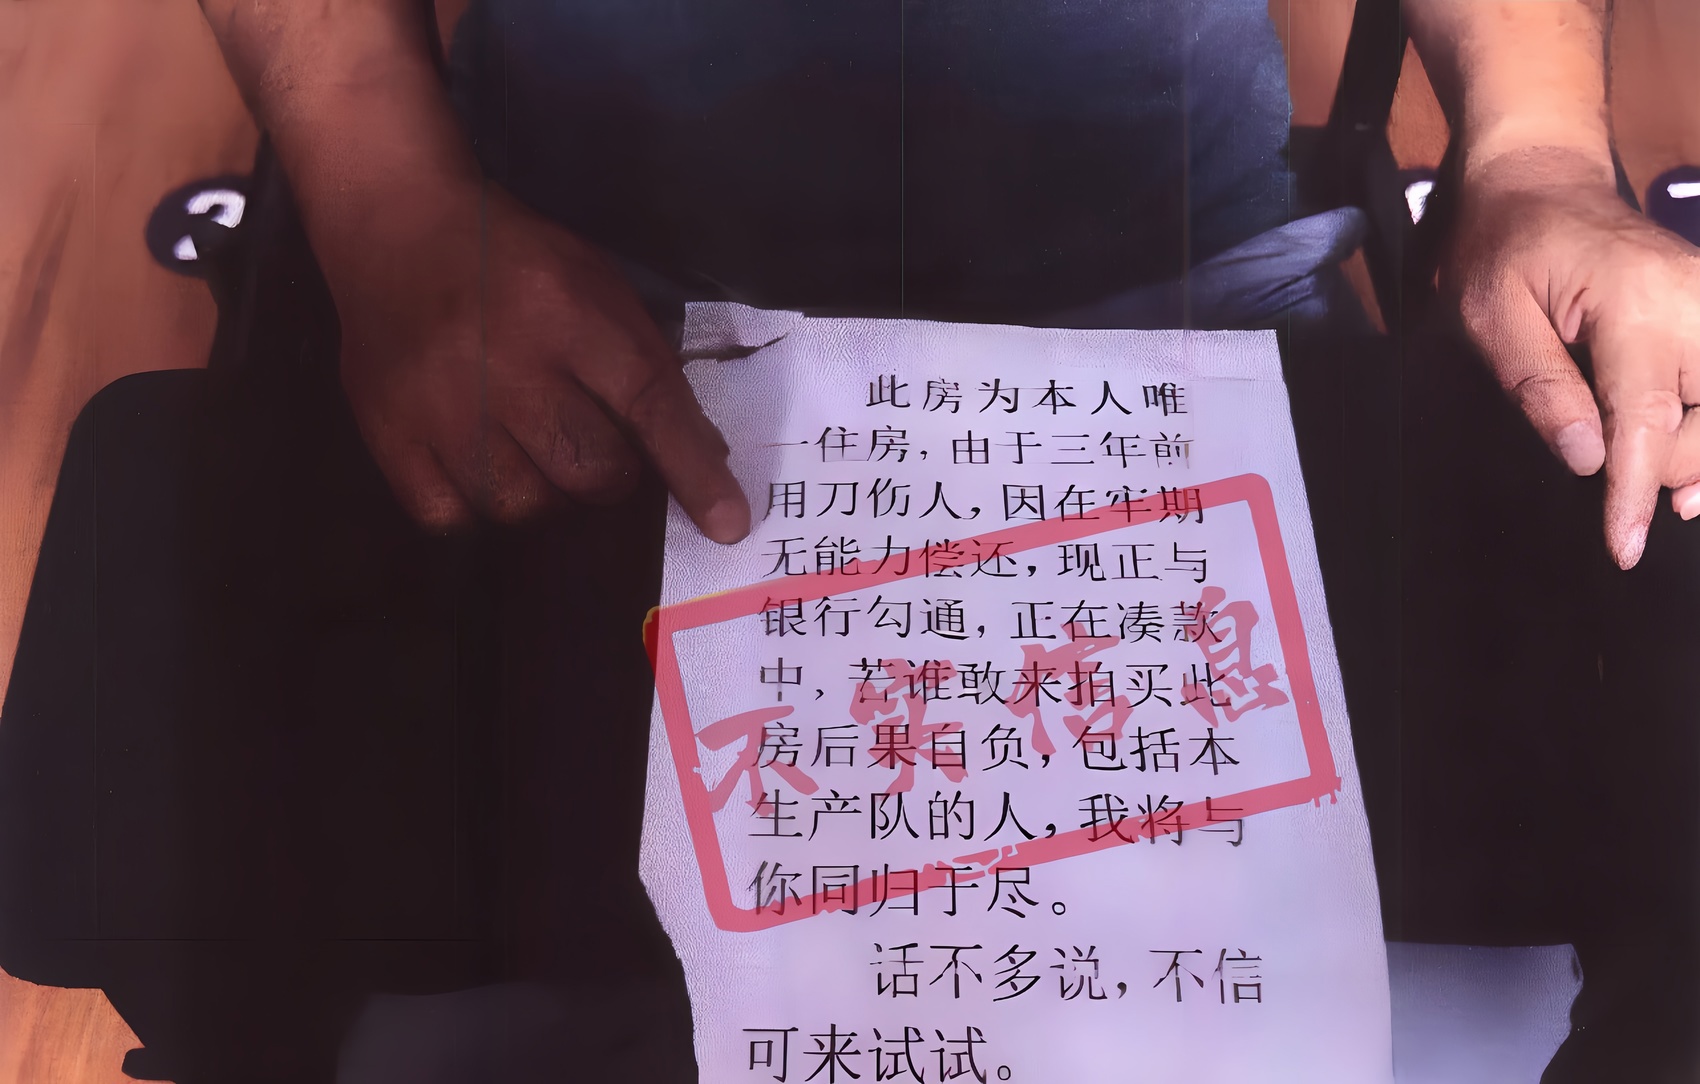 此房为本人唯
一住房，由于三年前
用刀伤人，因在牢期
无能力偿还，现正与
银行勾通，正在凑款
中，若谁敢来拍买此
房后果自负，包括本
生产队的人，我将与
你同归于尽。
话不多说，不信
可来试试。
不实信息